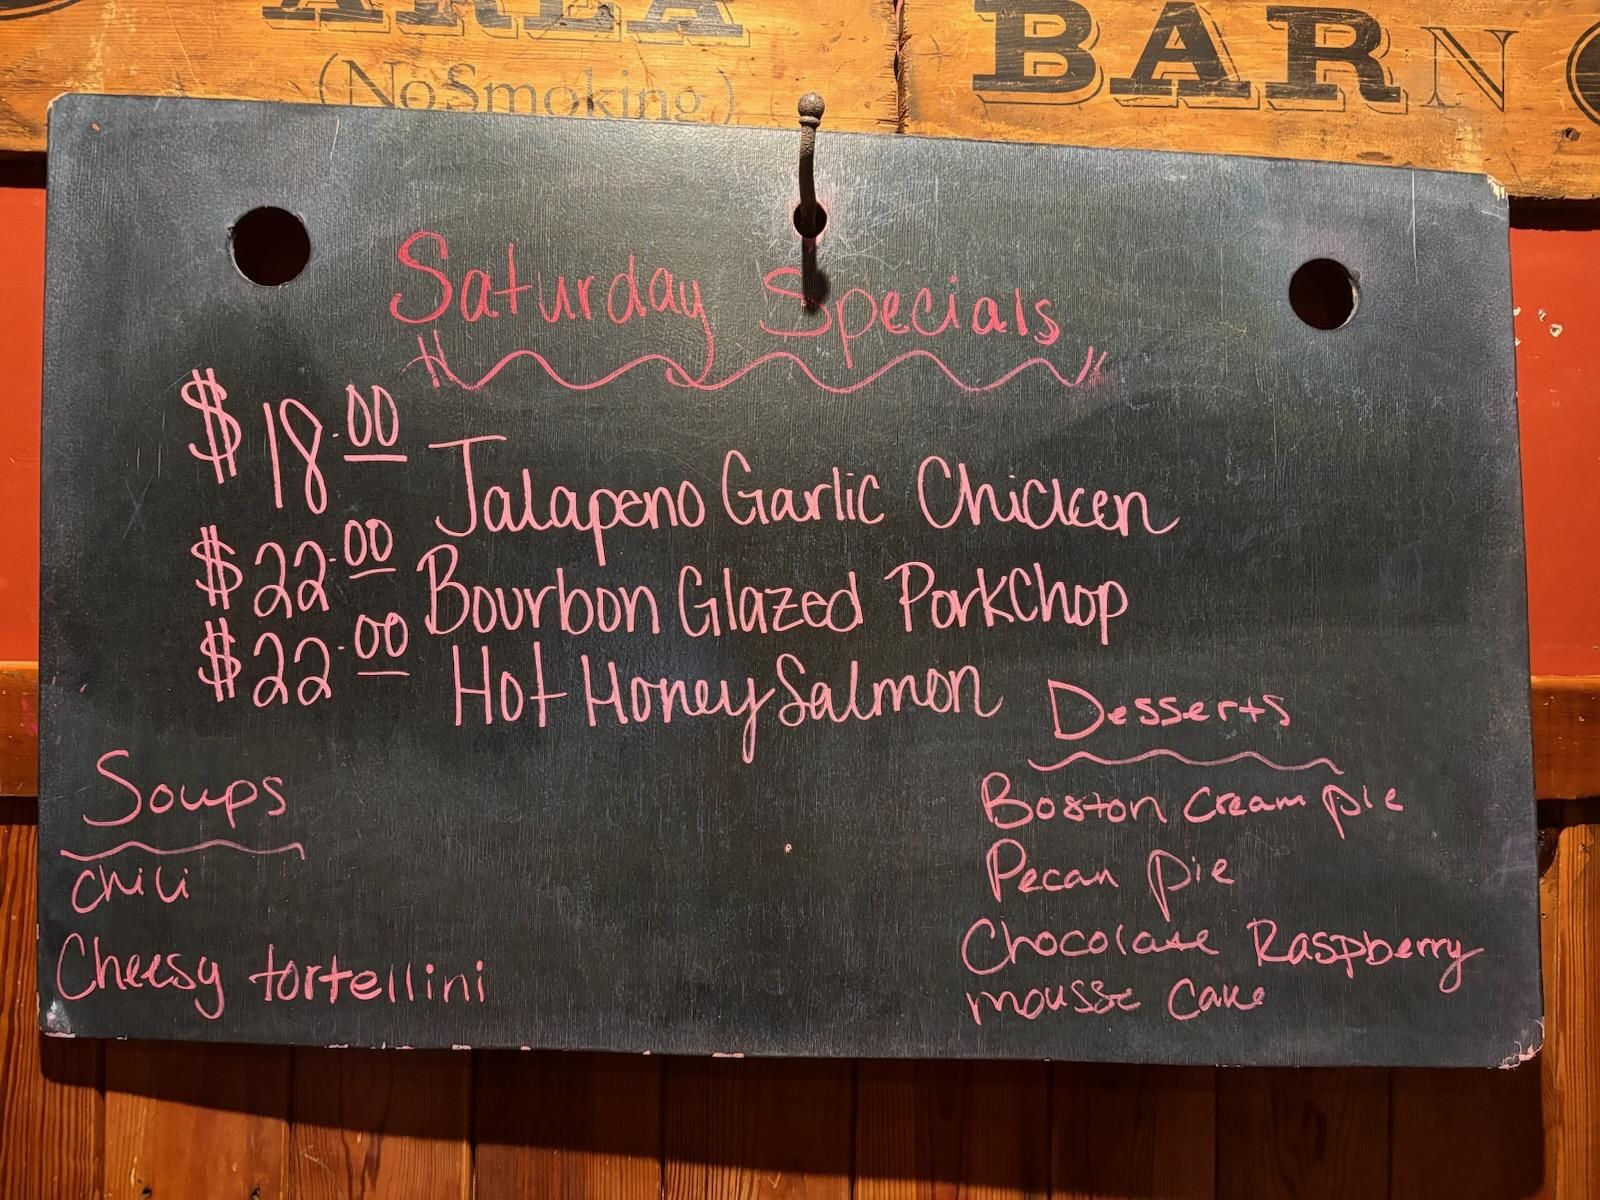 AREA
(No Smoking)
BARN
Saturday Specials
$18.00 Jalapeno Garlic Chicken
$22.00 Bourbon Glazed PorkChop
$22.00 Hot Honey Salmon
Soups
chili
Cheesy tortellini
Desserts
Boston cream pie
Pecan pie
Chocolate Raspberry
mousse cake